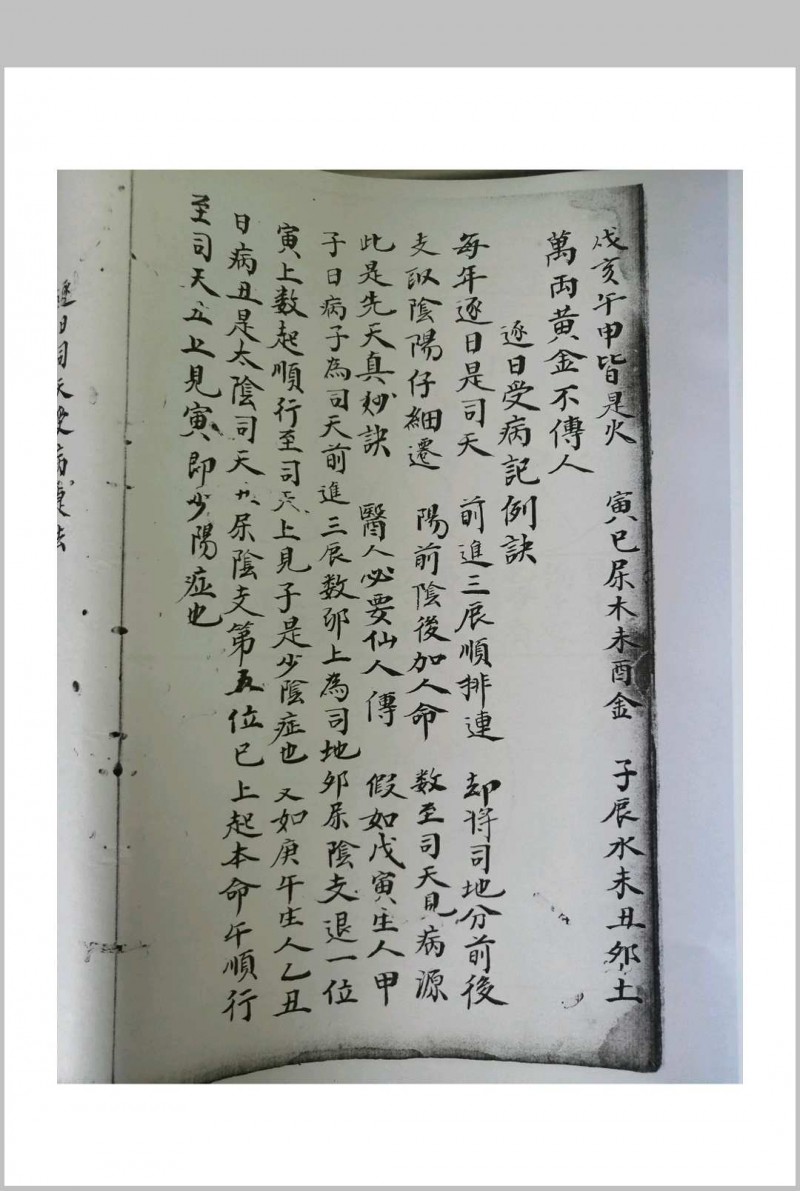 戌亥午申皆是火　寅巳屎木未酉金　子辰水未丑卯土
萬両黃金不傳人
逐日受病記例訣
每年逐日是司天　前進三辰順排連　却将司地分前後
支取陰陽仔細遷　陽前陰後加人命　数至司天見病源
此是先天真妙訣　醫人必要仙人傳　假如戊寅生人甲
子日病子為司天前進三辰数卯上為司地卯屎陰支退一位
寅上数起順行至司天上見子是少陰症也　又如庚午生人乙丑
日病丑是太陰司天 屎陰支第五位巳上起本命午順行
至司天丑上見寅即少陽症也
逐日司天受病 法